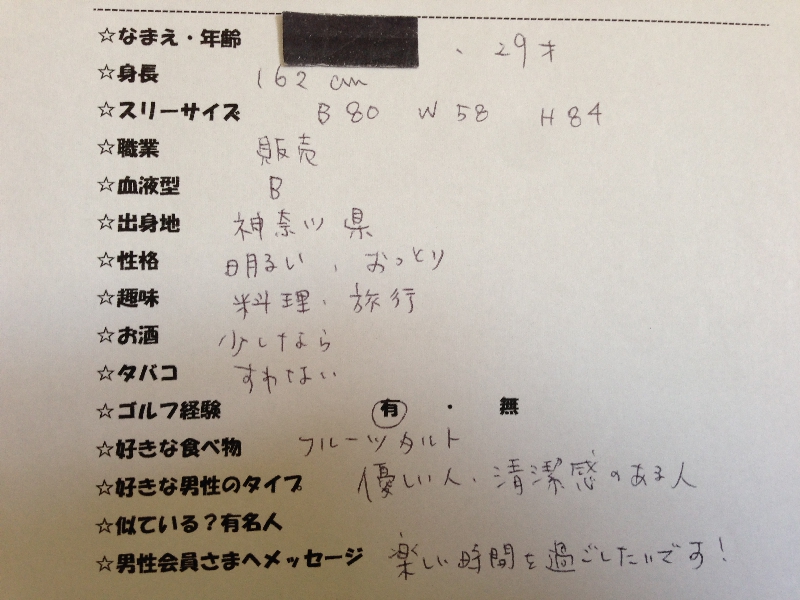 ☆なまえ・年齢 、29才
☆身長 162 cm
☆スリーサイズ B 80 W 58 H 84
☆職業 販売
☆血液型 B
☆出身地 神奈川県
☆性格 明るい、おっとり
☆趣味 料理、旅行
☆お酒 少しなら
☆タバコ すわない
☆ゴルフ経験 有 ・ 無
☆好きな食べ物 フルーツタルト
☆好きな男性のタイプ 優しい人、清潔感のある人
☆似ている?有名人
☆男性会員さまへメッセージ 楽しい時間を過ごしたいです!